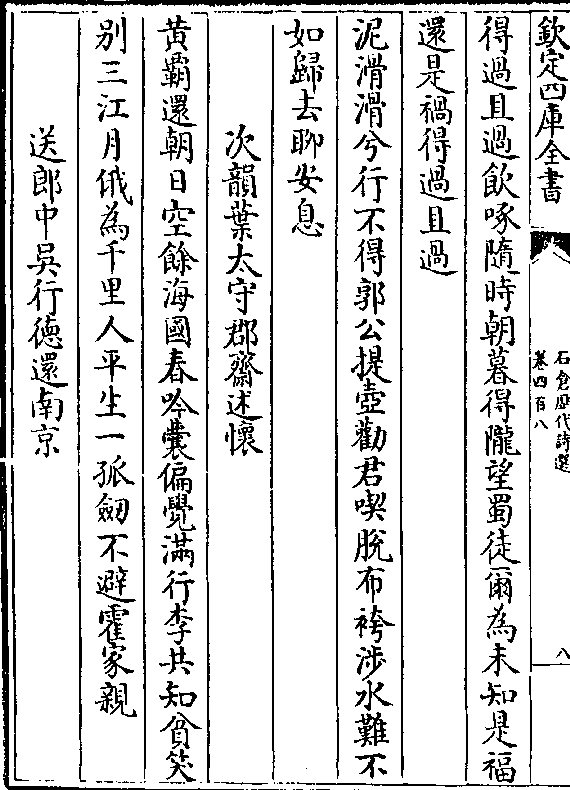 欽定四庫全書
石倉歷代詩選
卷四百八
八
得過且過飲啄隨時朝暮得隴望蜀徒爾為未知是福
還是禍得過且過
泥滑滑兮行不得郭公提壺勸君喫脫布袴涉水難不
如歸去聊安息
次韻葉太守郡齋述懷
黄霸還朝日空餘海國春吟囊偏覺滿行李共知貧笑
别三江月俄為千里人平生一孤劒不避霍家親
送郎中吳行德還南京